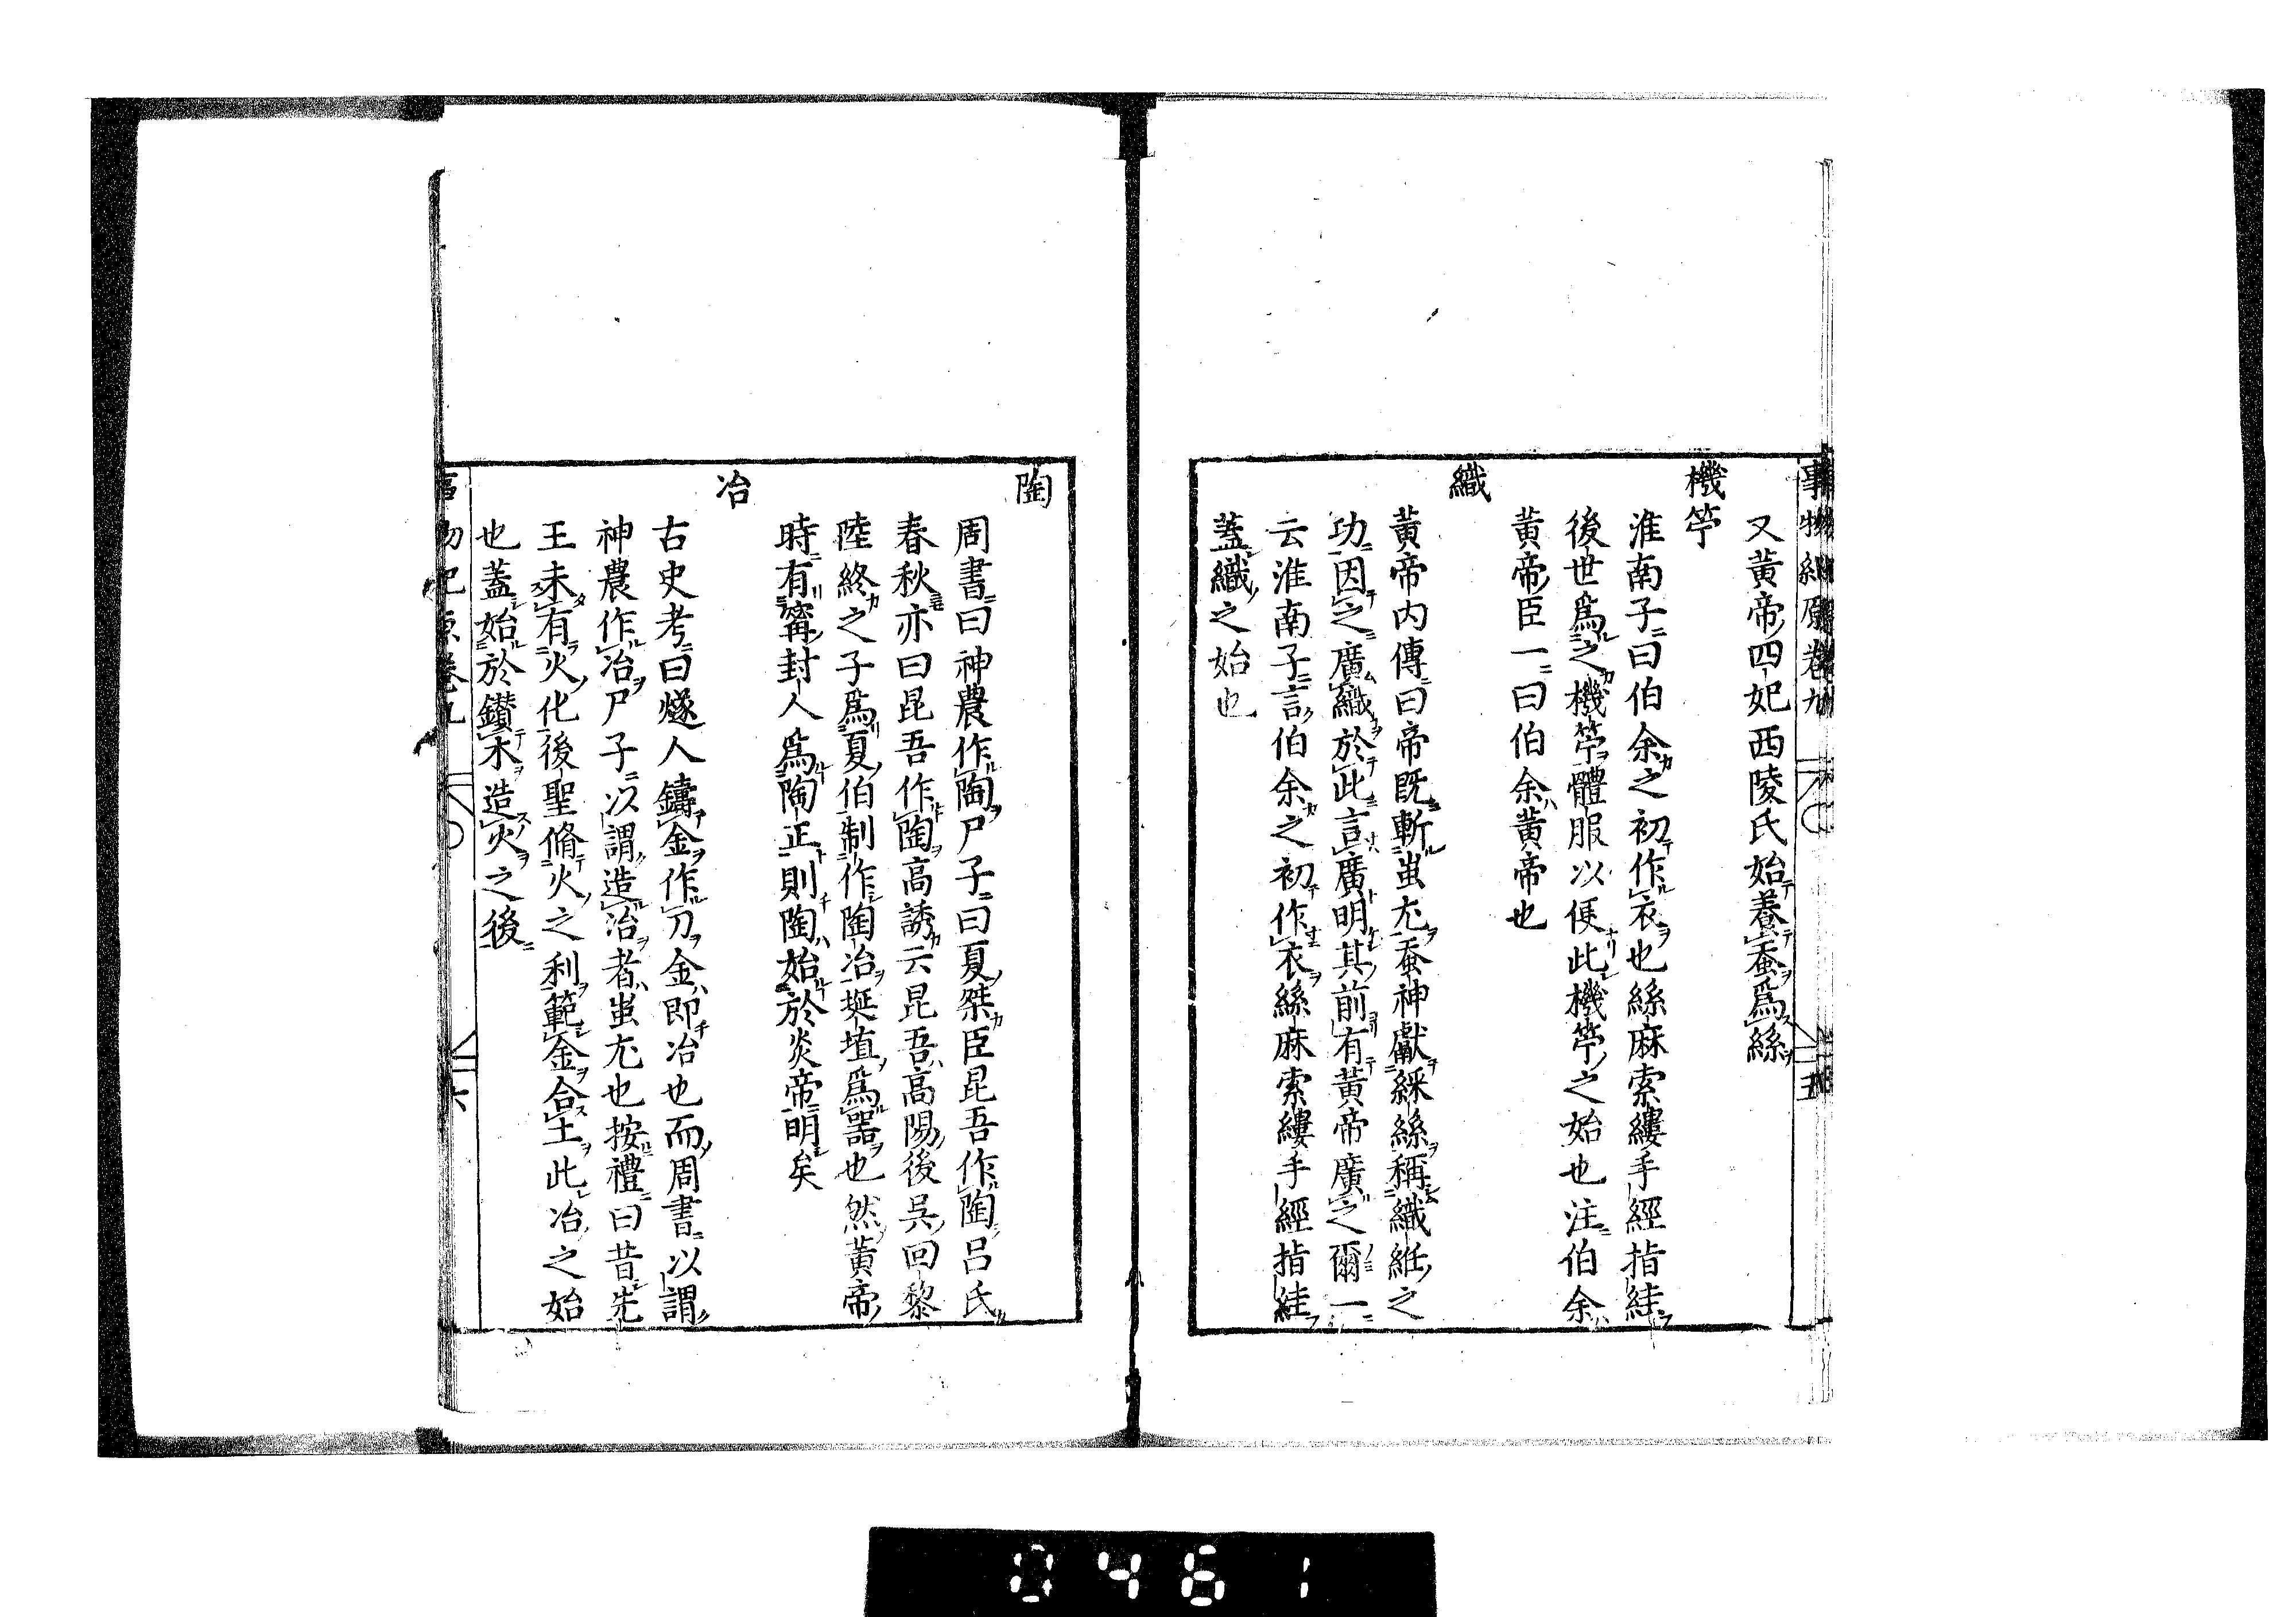 事物紀原卷九 五
又黃帝四妃西陵氏始養蚕爲絲
機竺
淮南子曰伯余之初作衣也絲麻索縷手經指絓
後世爲之機竺體服以便此機竺之始也注伯余
黃帝臣一曰伯余黃帝也
織
黃帝内傳曰帝既斬蚩尤蚕神獻綵絲稱織維之
功因之廣織於此言廣明其前有黃帝廣之爾一
云淮南子言伯余之初作衣絲麻索縷手經指絓
蓋織之始也
陶
周書曰神農作陶尸子曰夏桀臣昆吾作陶呂氏
春秋亦曰昆吾作陶高誘云昆吾高陽後吳回黎
陸終之子爲夏伯制作陶冶埏埴爲器也然黃帝
時有甯封人爲陶正則陶始於炎帝明矣
冶
古史考曰燧人鑄金作刀金即冶也而周書以謂
神農作冶尸子以謂造冶者蚩尤也按禮曰昔先
王未有火化後聖脩火之利範金合土此冶之始
也蓋始於鑚木造火之後
事物紀原卷九 六
0461